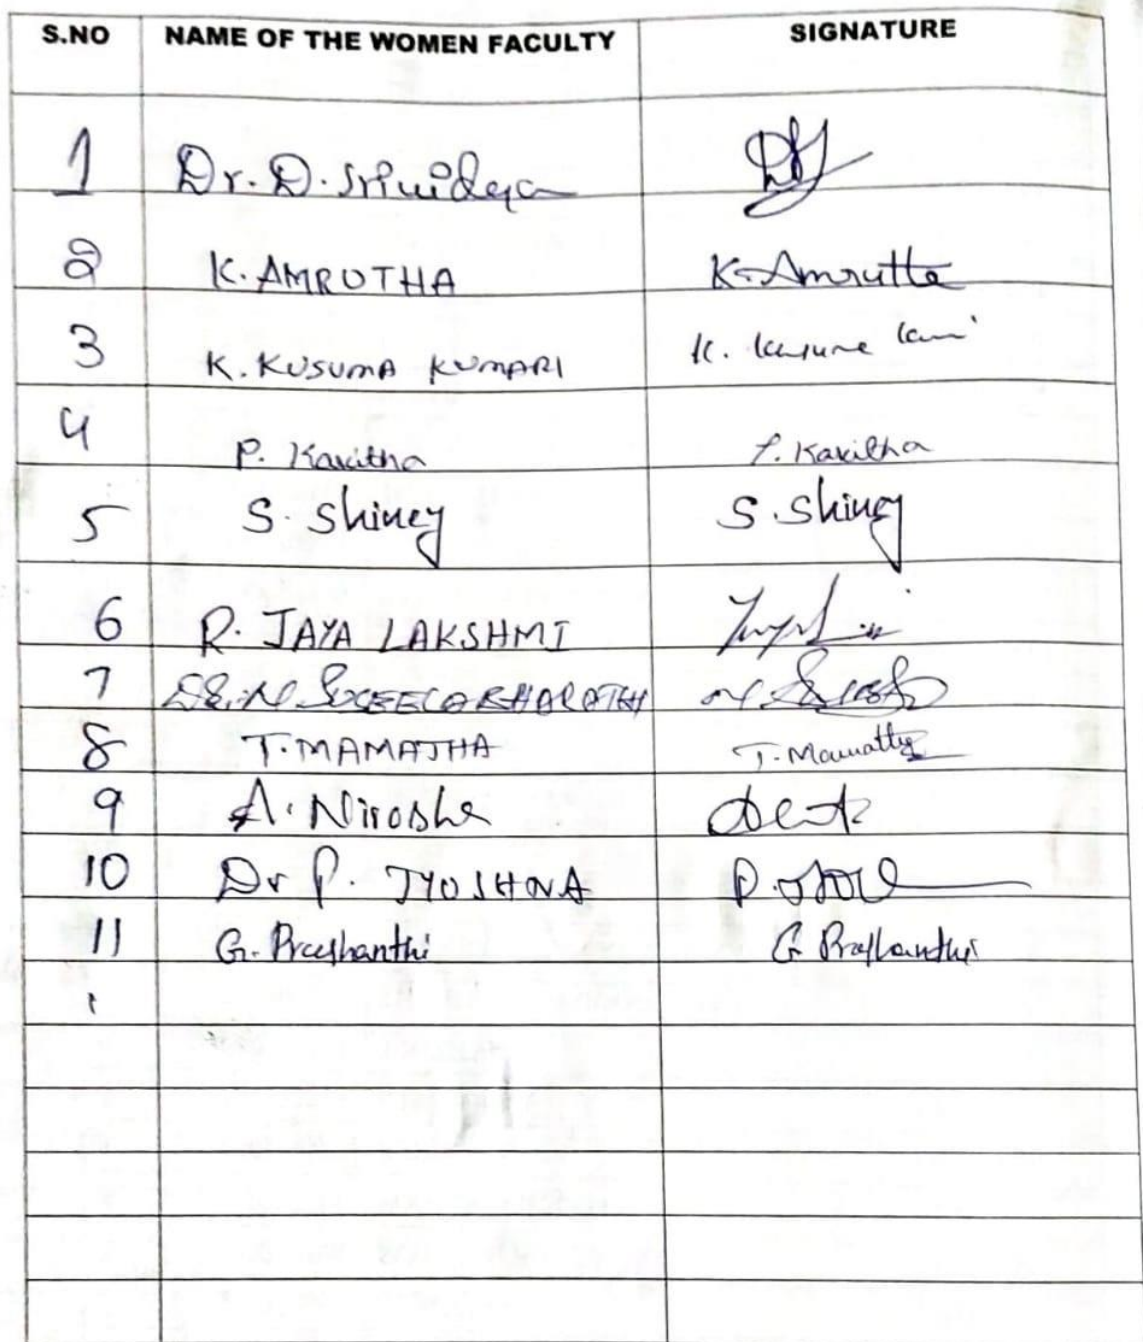 S.NO NAME OF THE WOMEN FACULTY SIGNATURE
1 Dr. D. Srividya
2 K. AMRUTHA K. Amrutha
3 K. KUSUMA KUMARI K. Kusuma
4 P. Kavitha P. Kavitha
5 S. Shiney S. Shiney
6 R. JAYA LAKSHMI
7
8 T. MAMATHA T. Mamatha
9 A. Nirosha
10 Dr P. JYOSHNA P.
11 G. Prashanthi G Prashanthi